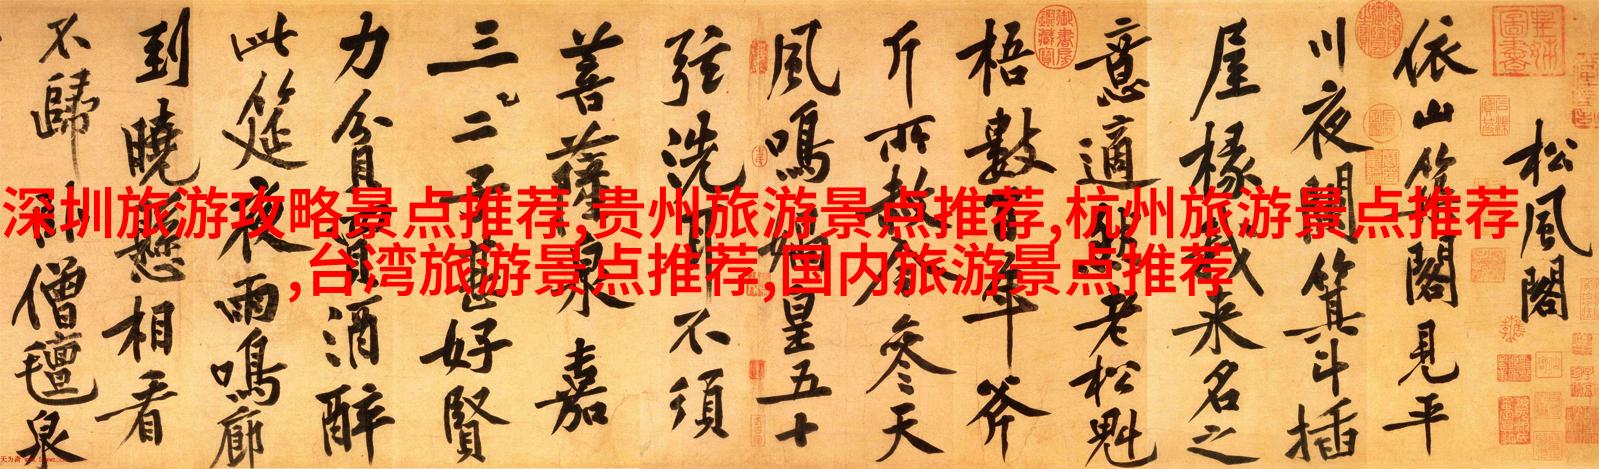 深圳旅游攻略景点推荐,贵州旅游景点推荐,杭州旅游景点推荐
,台湾旅游景点推荐,国内旅游景点推荐
松風閣
依山築閣見平
川夜闌箕斗插
屋椽我来名之
意適然老松魁
梧數百年斧
斤所赦今參天
風鳴媧皇五十
弦洗耳不須
菩薩泉嘉
三二子甚好賢
力貧買酒醉
此筵夜雨鳴廊
到曉懸相看
不歸臥僧氈泉